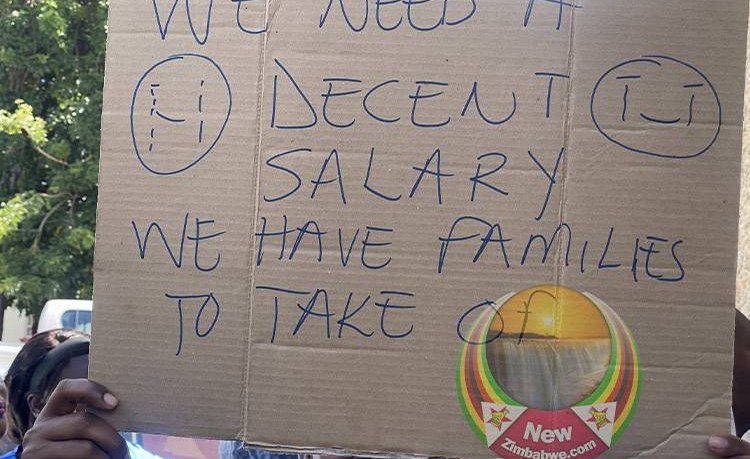 WE NEED A
DECENT
SALARY
WE HAVE FAMILIES
TO TAKE OF
New
Zimbabwe.com